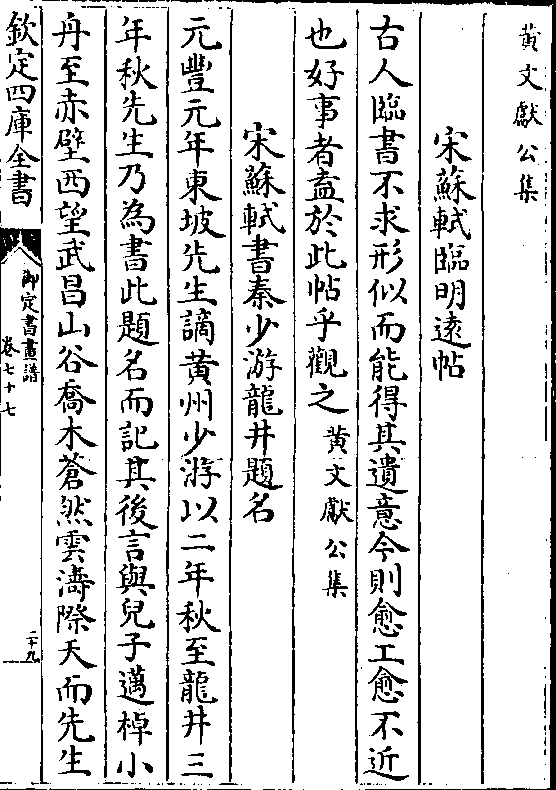 黄文獻公集
宋蘇軾臨明遠帖
古人臨書不求形似而能得其遺意今則愈工愈不近
也好事者盍於此帖乎觀之 黄文獻公集
宋蘇軾書秦少游龍井題名
元豐元年東坡先生謫黄州少游以二年秋至龍井三
年秋先生乃為書此題名而記其後言與兒子邁棹小
舟至赤壁西望武昌山谷喬木蒼然雲濤際天而先生
欽定四庫全書
御定書畫譜
卷七十七
二十九